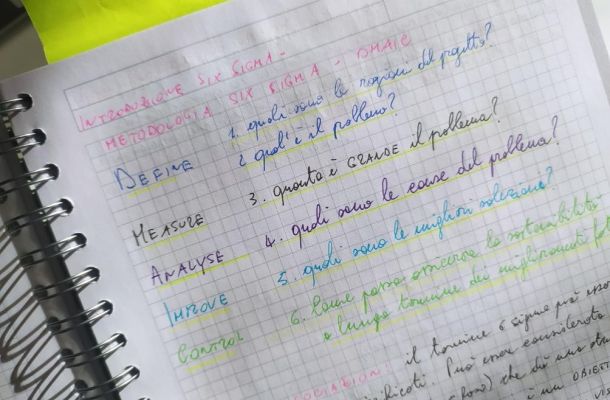 INTRODUZIONE SIX SIGMA -
METODOLOGIA SIX SIGMA - DMAIC
DEFINE 1. quali sono le ragioni del progetto?
2. qual'è il problema?
MEASURE 3. quanto è GRANDE il problema?
ANALYSE 4. quali sono le cause del problema?
IMPROVE 5. quali sono le migliori soluzioni?
CONTROL 6. Come posso la sostenibilità
a lungo termine dei miglioramenti
il termine 6 sigma può
Può essere
che dà una
OBIETT